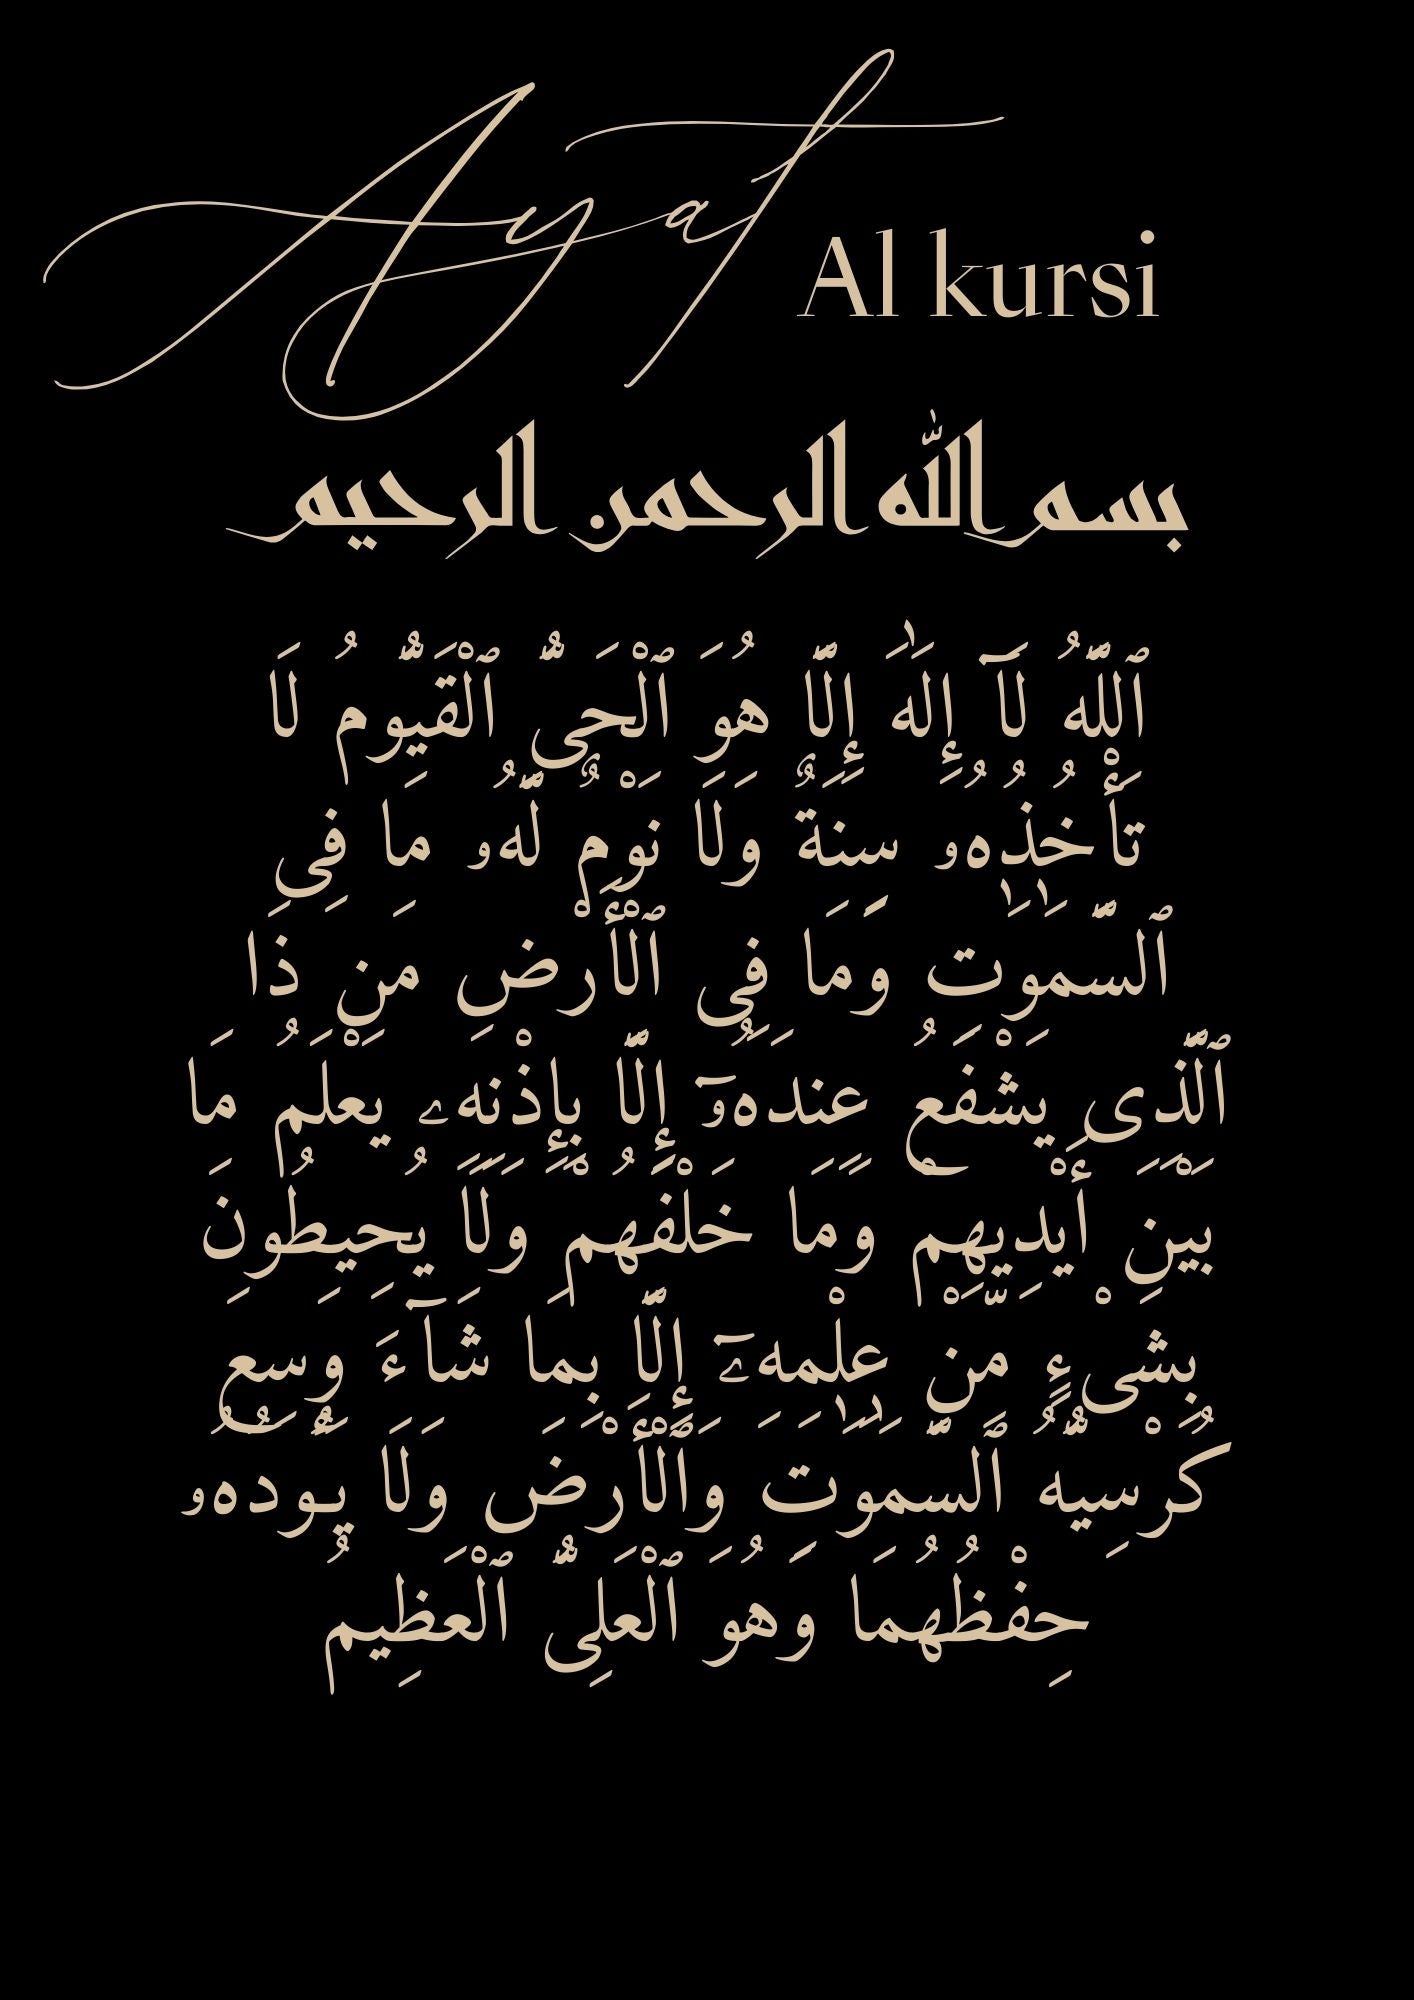 Ayat
Al kursi
بسم الله الرحمن الرحيم
ٱللَّهُ لَآ إِلَٰهَ إِلَّا هُوَ ٱلْحَىُّ ٱلْقَيُّومُ لَا
تَأْخُذُهُۥ سِنَةٌ وَلَا نَوْمٌ لَّهُۥ مَا فِى
ٱلسَّمَٰوَٰتِ وَمَا فِى ٱلْأَرْضِ مَن ذَا
ٱلَّذِى يَشْفَعُ عِندَهُۥٓ إِلَّا بِإِذْنِهِۦ يَعْلَمُ مَا
بَيْنَ أَيْدِيهِمْ وَمَا خَلْفَهُمْ وَلَا يُحِيطُونَ
بِشَىْءٍ مِّنْ عِلْمِهِۦٓ إِلَّا بِمَا شَآءَ وَسِعَ
كُرْسِيُّهُ ٱلسَّمَٰوَٰتِ وَٱلْأَرْضَ وَلَا يَـُٔودُهُۥ
حِفْظُهُمَا وَهُوَ ٱلْعَلِىُّ ٱلْعَظِيمُ